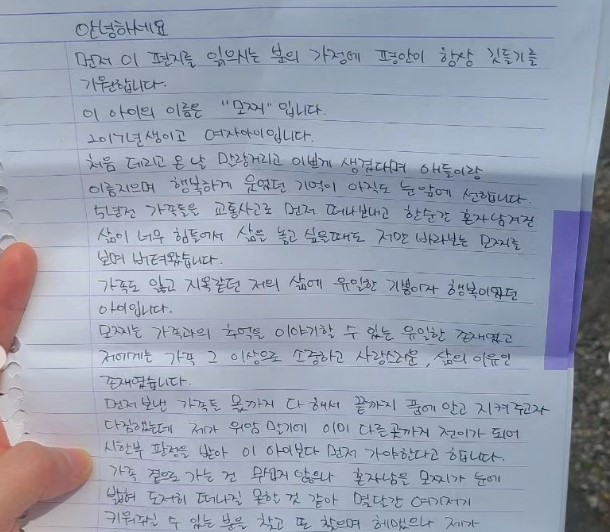 안녕하세요
먼저 이 편지를 읽으시는 분의 가정에 평안이 항상 깃들기를
기원합니다.
이 아이의 이름은 "모찌" 입니다.
2017년생이고 여자아이입니다.
처음 데리고 온 날 말랑거리고 이쁘게 생겼다며 애들이랑
이름지으며 행복하게 웃었던 기억이 아직도 눈앞에 선합니다.
5년전 가족들을 교통사고로 먼저 떠나보내고 한순간 혼자남겨진
삶이 너무 힘들어서 삶을 놓고 싶을때도 저만 바라보는 모찌를
보며 버텨왔습니다.
가족도 잃고 지옥같던 저의 삶에 유일한 기쁨이자 행복이였던
아이입니다.
모찌는 가족과의 추억을 이야기할 수 있는 유일한 존재였고
저에게는 가족 그 이상으로 소중하고 사랑스러운, 삶의 이유인
존재였습니다.
먼저보낸 가족들 몫까지 다 해서 끝까지 품에 안고 지켜주고자
다짐했는데 제가 위암 말기에 이미 다른곳까지 전이가 되어
시한부 판정을 받아 이 아이보다 먼저 가야한다고 합니다.
가족 곁으로 가는 건 무섭지 않으나 혼자남을 모찌가 눈에
밟혀 도저히 떠나질 못할 것 같아 몇달간 여기저기
키워주실 수 있는 분을 찾고 또 찾으며 헤맸으나 제가